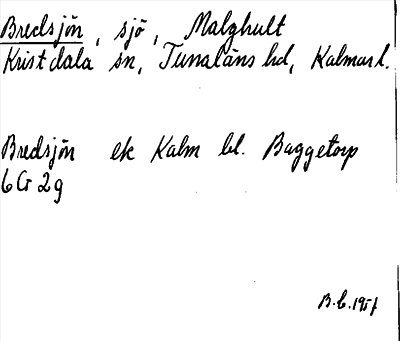 Bredsjön, sjö, Malghult
Kristdala sn, Tunaläns hd, Kalmar l.
Bredsjön ek Kalm bl. Baggetorp
6 G 2g
B.L.